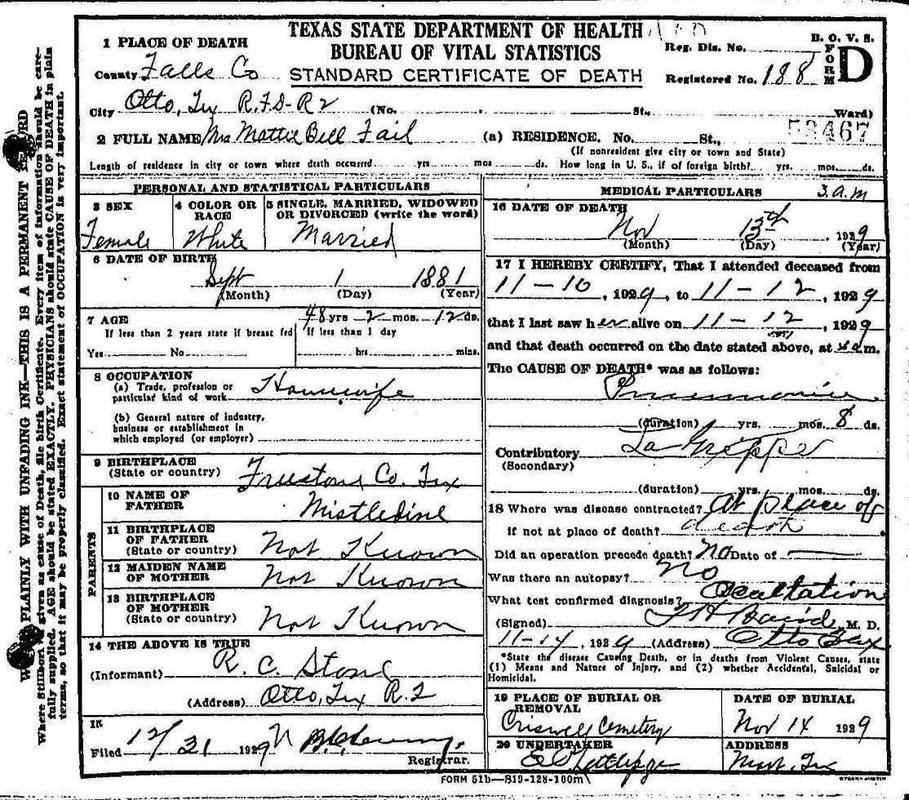 TEXAS STATE DEPARTMENT OF HEALTH
BUREAU OF VITAL STATISTICS
STANDARD CERTIFICATE OF DEATH
B. O. V. S.
FORM D
Reg. Dis. No.
Registered No. 188
53467
1 PLACE OF DEATH
County Falls Co
City Otto, Tex R.F.D-R2 (No. , St., Ward)
2 FULL NAME Mrs Mattie Bell Fail (a) RESIDENCE, No. St.,
(If nonresident give city or town and State)
Length of residence in city or town where death occurred yrs. mos. ds. How long in U. S., if of foreign birth? yrs. mos. ds.
PERSONAL AND STATISTICAL PARTICULARS
3 SEX
Female
4 COLOR OR RACE
White
5 SINGLE, MARRIED, WIDOWED OR DIVORCED (write the word)
Married
6 DATE OF BIRTH
Sept 1 1881
(Month) (Day) (Year)
7 AGE 48 yrs 2 mos. 12 ds.
If less than 2 years state if breast fed
If less than 1 day
Yes No hrs mins.
8 OCCUPATION
(a) Trade, profession or particular kind of work Housewife
(b) General nature of industry, business or establishment in which employed (or employer)
9 BIRTHPLACE
(State or country) Freestone Co. Tex
PARENTS
10 NAME OF FATHER Mistledine
11 BIRTHPLACE OF FATHER
(State or country) Not Known
12 MAIDEN NAME OF MOTHER Not Known
13 BIRTHPLACE OF MOTHER
(State or country) Not Known
14 THE ABOVE IS TRUE
(Informant) R. C. Stone
(Address) Otto, Tex R.2
15
Filed 12/31 1929
Registrar.
MEDICAL PARTICULARS 3 a.m
16 DATE OF DEATH
Nov 13th, 1929
(Month) (Day) (Year)
17 I HEREBY CERTIFY, That I attended deceased from
11-10, 1929, to 11-12, 1929
that I last saw her alive on 11-12, 1929
and that death occurred on the date stated above, at m.
The CAUSE OF DEATH* was as follows:
Pneumonia
(duration) yrs. mos. 8 ds.
Contributory La Grippe
(Secondary)
(duration) yrs. mos. ds.
18 Where was disease contracted? At place of
if not at place of death? death
Did an operation precede death? no Date of
Was there an autopsy? No
What test confirmed diagnosis?
(Signed) Baird, M. D.
11-14, 1929 (Address) Otto Tex
*State the disease Causing Death, or in deaths from Violent Causes, state (1) Means and Nature of Injury, and (2) whether Accidental, Suicidal or Homicidal.
19 PLACE OF BURIAL OR REMOVAL
Criswell Cemetery
DATE OF BURIAL
Nov 14 1929
20 UNDERTAKER
ADDRESS
Mart, Tex
FORM 51b—819-128-100m
PLAINLY WITH UNFADING INK—THIS IS A PERMANENT
given as cause of Death, file birth Certificate. Every item of information should be care-
fully supplied. AGE should be stated EXACTLY. PHYSICIANS should state CAUSE OF DEATH in plain
terms, so that it may be properly classified. Exact statement of OCCUPATION is very important.